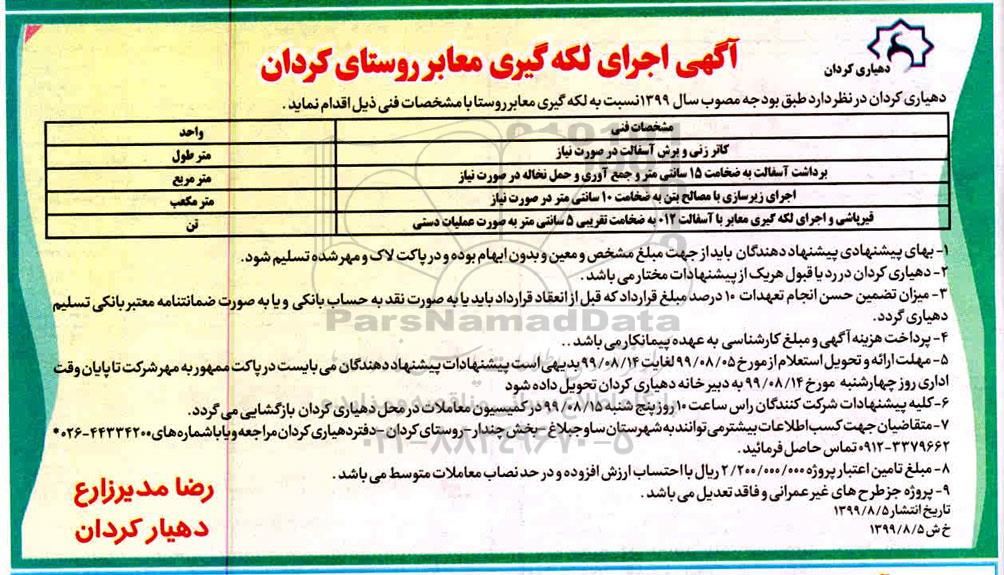 آگهی اجرای لکه گیری معابر روستای کردان
دهیاری کردان
دهیاری کردان در نظر دارد طبق بودجه مصوب سال ۱۳۹۹ نسبت به لکه گیری معابر روستا با مشخصات فنی ذیل اقدام نماید .
مشخصات فنی واحد
کاتر زنی و برش آسفالت در صورت نیاز متر طول
برداشت آسفالت به ضخامت ۱۵ سانتی متر و جمع آوری و حمل نخاله در صورت نیاز متر مربع
اجرای زیرسازی با مصالح بتن به ضخامت ۱۰ سانتی متر در صورت نیاز متر مکعب
قیرپاشی و اجرای لکه گیری معابر با آسفالت ۰۱۲ به ضخامت تقریبی ۵ سانتی متر به صورت عملیات دستی تن
۱- بهای پیشنهادی پیشنهاد دهندگان باید از جهت مبلغ مشخص و معین و بدون ابهام بوده و در پاکت لاک و مهر شده تسلیم شود.
۲- دهیاری کردان در رد یا قبول هریک از پیشنهادات مختار می باشد .
۳- میزان تضمین حسن انجام تعهدات ۱۰ درصد مبلغ قرارداد که قبل از انعقاد قرارداد باید یا به صورت نقد به حساب بانکی و یا به صورت ضمانتنامه معتبر بانکی تسلیم
دهیاری گردد.
۴- پرداخت هزینه آگهی و مبلغ کارشناسی به عهده پیمانکار می باشد . .
۵- مهلت ارائه و تحویل استعلام از مورخ ۹۹/۰۸/۰۵ لغایت ۹۹/۰۸/۱۴ بدیهی است پیشنهادات پیشنهاد دهندگان می بایست در پاکت ممهور به مهر شرکت تا پایان وقت
اداری روز چهارشنبه مورخ ۹۹/۰۸/۱۴ به دبیرخانه دهیاری کردان تحویل داده شود
۶- کلیه پیشنهادات شرکت کنندگان راس ساعت ۱۰ روز پنج شنبه ۹۹/۰۸/۱۵ در کمیسیون معاملات در محل دهیاری کردان بازگشایی می گردد.
۷- متقاضیان جهت کسب اطلاعات بیشتر می توانند به شهرستان ساوجبلاغ - بخش چندار - روستای کردان - دفتر دهیاری کردان مراجعه و یا با شماره های ۴۴۳۳۴۲۰۰-۰۲۶ *
۰۹۱۲-۳۳۷۹۶۶۲ تماس حاصل فرمائید .
۸- مبلغ تامین اعتبار پروژه ۲/۲۰۰/۰۰۰/۰۰۰ ریال با احتساب ارزش افزوده و در حد نصاب معاملات متوسط می باشد .
۹- پروژه جز طرح های غیر عمرانی و فاقد تعدیل می باشد .
تاریخ انتشار ۱۳۹۹/۸/۵
خ ش ۱۳۹۹/۸/۵
رضا مدیرزارع
دهیار کردان
ParsNamadData
۰۲۱-۸۸۳۴۹۶۷۰-۵